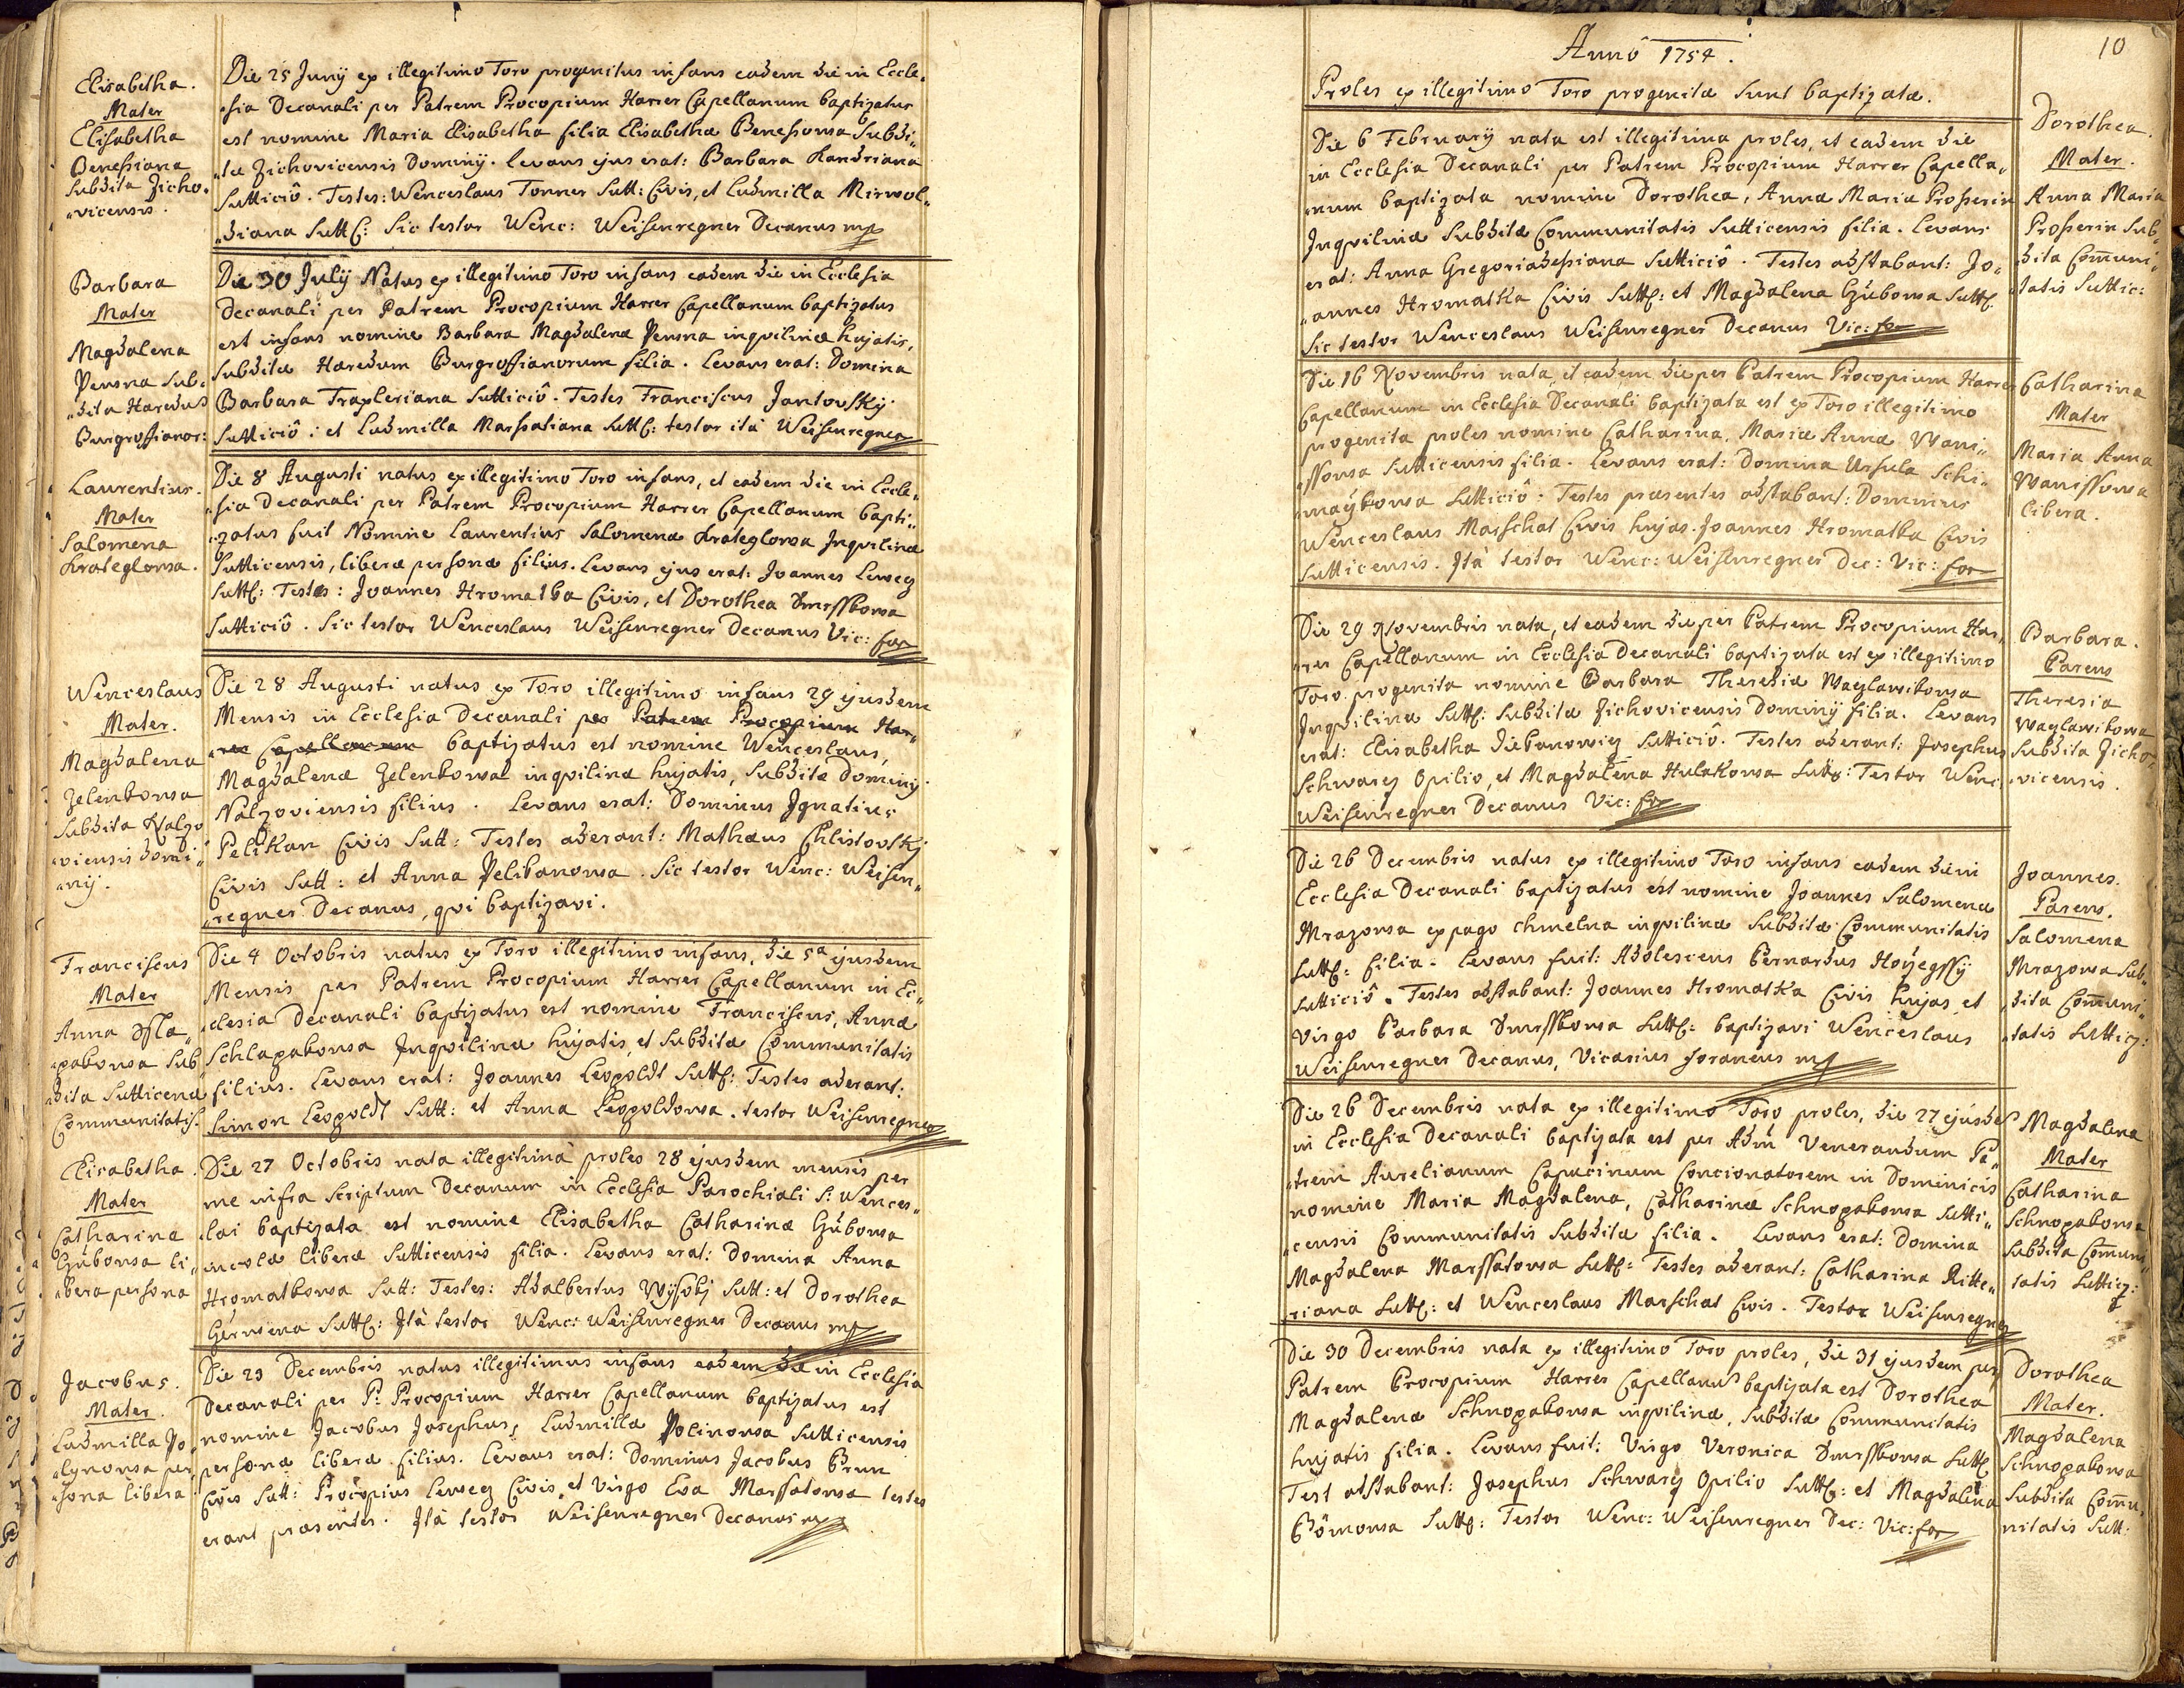 Elisabetha.
Mater
Elisabetha
Benessiana
Subdita Zicho„
„vicensis.
Die 25 Junij ex illegitimo Toro progenitus infans eadem die in Eccle„
„sia Decanali per Patrem Procopium Harrer Capellanum baptizatus
est nomine Maria Elisabetha filia Elisabethæ Benessowa Subdi„
„tæ Zichovicensis Dominij. Levans ejus erat: Barbara Kandriana
Sutticiô. Testes: Wenceslaus Tonner Sutt: Civis, et Ludmilla Mirwol„
„diana Suttc: Sic testor Wenc: Weisenregner Decanus mp
Barbara
Mater
Magdalena
Pensna Sub„
„dita Hæredum
Burgroffianor:
Die 30 Julij Natus ex illegitimo Toro infans eadem die in Ecclesia
Decanali per Patrem Procopium Harrer Capellanum baptizatus
est infans nomine Barbara Magdalenæ Pensna inqvilinæ hujatis,
Subditæ Hæredum Burgroffianorum filia. Levans erat: Domina
Barbara Traxleriana Sutticiô. Testes Franciscus Jantovsky
Sutticiô: et Ludmilla Marssatiana Suttc: testor ità Weisenregner
Laurentius.
Mater
Salomena
Krateglowa.
Die 8 Augusti natus ex illegitimo Toro infans, et eadem die in Eccle„
„sia Decanali per Patrem Procopium Harrer Capellanum bapti„
„zatus fuit Nomine Laurentius Salomenæ Krateglowa Inqvilinæ
Sutticensis, liberæ personæ filius. Levans ejus erat: Joannes Leweg
Suttc: Testes: Joannes Hromatka Civis, et Dorothea Smrsskowa
Sutticiô. Sic testor Wenceslaus Weisenregner Decanus Vic: for
Wenceslaus
Mater.
Magdalena
Zelenkowa
Subdita Nalzo
„viensis Domi„
„nij.
Die 28 Augusti natus ex Toro illegitimo infans 29 ejusdem
Mensis in Ecclesia Decanali per Patrem Procopium Har„
„rer Capellanum baptizatus est nomine Wenceslaus,
Magdalenæ Zelenkowa inqvilinæ hujatis, Subditæ Dominij
Nalzoviensis filius. Levans erat: Dominus Ignatius
Pelikan Civis Sutt: Testes aderant: Mathæus Chlistovskÿ
Civis Sutt: et Anna Pelikanowa. Sic testor Wenc: Weisen„
„regner Decanus, qvi baptizavi.
Franciscus
Mater
Anna Ssla„
„pakowa Sub„
„dita Sutticenæ
Communitatis.
Die 4 Octobris natus ex Toro illegitimo infans, die 5a ejusdem
Mensis per Patrem Procopium Harrer Capellanum in Ec„
„clesia Decanali baptizatus est nomine Franciscus, Annæ
Schlapakowa Inqvilinæ hujatis, et Subditæ Communitatis
filius. Levans erat: Joannes Leopoldt Suttc: Testes aderant:
Simon Leopoldt Sutt: et Anna Leopoldowa. testor Weisenregner
Elisabetha.
Mater
Catharina
Gzubowa li„
„bera persona
Die 27 Octobris nata illegitima proles 28 ejusdem mensis per
me infra Scriptum Decanum in Ecclesia Parochiali S: Wences„
„lai baptizata est nomine Elisabetha Catharinæ Gzubowa
incolæ liberæ Sutticensis filia. Levans erat: Domina Anna
Hromatkowa Sutt: Testes: Adalbertus Wysokÿ Sutt: et Dorothea
Suttc: Ità testor Wenc: Weisenregner Decanus mp
Jacobus.
Mater.
Ludmilla Po
„lynowa per„
„sona libera
Die 23 Decembris natus illegitimus infans eadem die in Ecclesia
Decanali per P: Procopium Harrer Capellanum baptizatus est
nomine Jacobus Josephus, Ludmillæ Polinowa Sutticensis
personæ liberæ filius. Levans erat: Dominus Jacobus Brun
Civis Sutt: Procopius Leweg Civis et Virgo Eva Marssatowa testes
erant præsentes. Ità testor Weisenregner Decanus mp
10
Annô 1754.
Proles ex illegitimo Toro progenitæ Sunt baptizatæ.
Die 6 Februarij nata est illegitima proles, et eadem die
in Ecclesia Decanali per Patrem Procopium Harrer Capella„
„num baptizata nomine Dorothea, Annæ Mariæ Prosserin
Inqvilinæ Subditæ Communitatis Sutticensis filia. Levans
erat: Anna Gregoriadessiana Sutticiô. Testes adstabant: Jo„
„annes Hromatka Civis Suttc: et Magdalena Gzubowa Suttc.
Sic testor Wenceslaus Weisenregner Decanus Vic: for
Dorothea.
Mater.
Anna Maria
Prosserin Sub„
„dita Com̄uni„
„tatis Suttic:
Die 16 Novembris nata, et eadem die per Patrem Procopium Harrer
Capellanum in Ecclesia Decanali baptizata est ex Toro illegitimo
progenita proles nomine Catharina, Mariæ Annæ Wani„
„ssowa Sutticensis filia. Levans erat: Domina Ursula Schi„
„maÿkowa Sutticiô: Testes præsentes adstabant: Dominus
Wenceslaus Marschat Civis hujas. Joannes Hromatka Civis
Sutticensis. Ità testor Wenc: Weisenregner Dec: Vic: for
Catharina
Mater
Maria Anna
Wanissowa
libera.
Die 29 Novembris nata, et eadem die per Patrem Procopium Har„
„rer Capellanum in Ecclesia Decanali baptizata est ex illegitimo
Toro progenita nomine Barbara Theresiæ Wazlawikowa
Inqvilinæ Suttc: Subditæ Zichovicensis Dominij filia. Levans
erat: Elisabetha Sutticiô. Testes aderant: Josephus
Schwarz Opilio, et Magdalena Hulakowa Suttc: Testor Wenc:
Weisenregner Decanus Vic: for
Barbara.
Parens
Theresia
Wazlawikowa
Subdita Zicho„
„vicensis.
Die 26 Decembris natus ex illegitimo Toro infans eadem die in
Ecclesia Decanali baptizatus est nomine Joannes Salomenæ
Mrazowa ex pago Chmelna inqvilinæ Subditæ Communitatis
Suttc: filia. Levans fuit: Adolescens Bernardus Hoÿegssÿ
Sutticiô. Testes adstabant: Joannes Hromatka Civis hujas, et
Virgo Barbara Smrsskowa Suttc: baptizavi Wenceslaus
Weisenregner Decanus, Vicarius foraneus mp
Joannes.
Parens.
Salomena
Mrazowa Sub„
„dita Com̄uni„
„tatis Sutticz:
Die 26 Decembris nata ex illegitimo Toro proles, die 27 ejusde
in Ecclesia Decanali baptizata est per Adm̄ Venerandum Pa„
„trem Aurelianum Capucinum Concionatorem in Dominicis
nomine Maria Magdalena, Catharinæ Schnopakowa Sutti„
„censis Communitatis Subditæ filia. Levans erat: Domina
Magdalena Marssatowa Suttc: Testes aderant: Catharina Ritte„
„riana Suttc: et Wenceslaus Marschat Civis. Testor Weisenregner
Magdalena
Mater
Catharina
Schnopakowa
Subdita Com̄uni
tatis Sutticz:
Die 30 Decembris nata ex illegitimo Toro proles, die 31 ejusdem per
Patrem Procopium Harrer Capellanū baptizata est Dorothea
Magdalenæ Schnopakowa inqvilinæ, Subditæ Communitatis
hujatis filia. Levans fuit: Virgo Veronica Smrsskowa Suttc
Test adstabant: Josephus Schwarz Opilio Suttc: et Magdalena
Bömowa Suttc: Testor Wenc: Weisenregner Dec: Vic: for
Dorothea
Mater.
Magdalena
Schnopakowa
Subdita Com̄u„
nitatis Sutt: